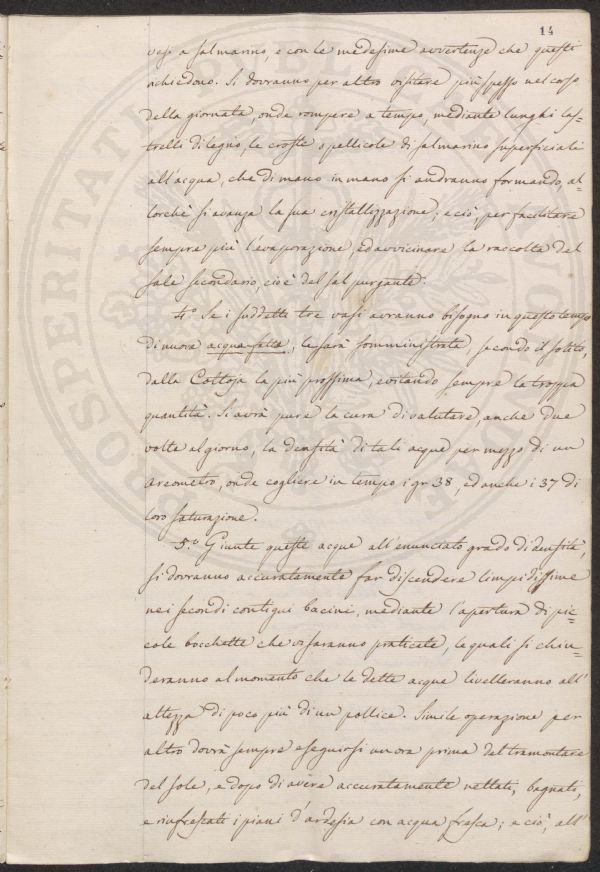 14
vasi a salmarino, e con le medesime avvertenze che questi
richiedono. Si dovranno per altro visitare più spesso nel corso
della giornata, onde rompere a tempo, mediante lunghi ras=
trelli di legno, le croste o pellicole di salmarino superficiali
all'acqua, che di mano in mano si andranno formando, al=
lorchè si avanza la sua cristallizzazione; e ciò, per facilitare
sempre più l'evaporazione, ed avvicinare la raccolta del
sale secondario, cioè del sal purgante.
4.° Se i suddetti tre vasi avranno bisogno in questo tempo
di nuova acqua-fatta, le sarà somministrata, secondo il solito,
dalla Cottoja la più prossima, evitando sempre la troppa
quantità. Si avrà pure la cura di valutare, anche due
volte al giorno, la densità di tali acque per mezzo di un
areometro, onde cogliere in tempo i gr 38, ed anche i 37 di
loro saturazione.
5.° Giunte queste acque all'enunciato grado di densità,
si dovranno accuratamente far discendere limpidissime
nei secondi contigui bacini, mediante l'apertura di pic=
cole bocchette che vi saranno praticate, le quali si chiu=
deranno al momento che le dette acque livelleranno all'
altezza di poco più di un pollice. Simile operazione per
altro dovrà sempre eseguirsi un'ora prima del tramontare
del sole, e dopo di avere accuratamente nettati, bagnati,
e rinfrescati i piani d'ardesia con acqua fresca; e ciò, all'
PROSPERITATI PUBLICAE AUGENDAE